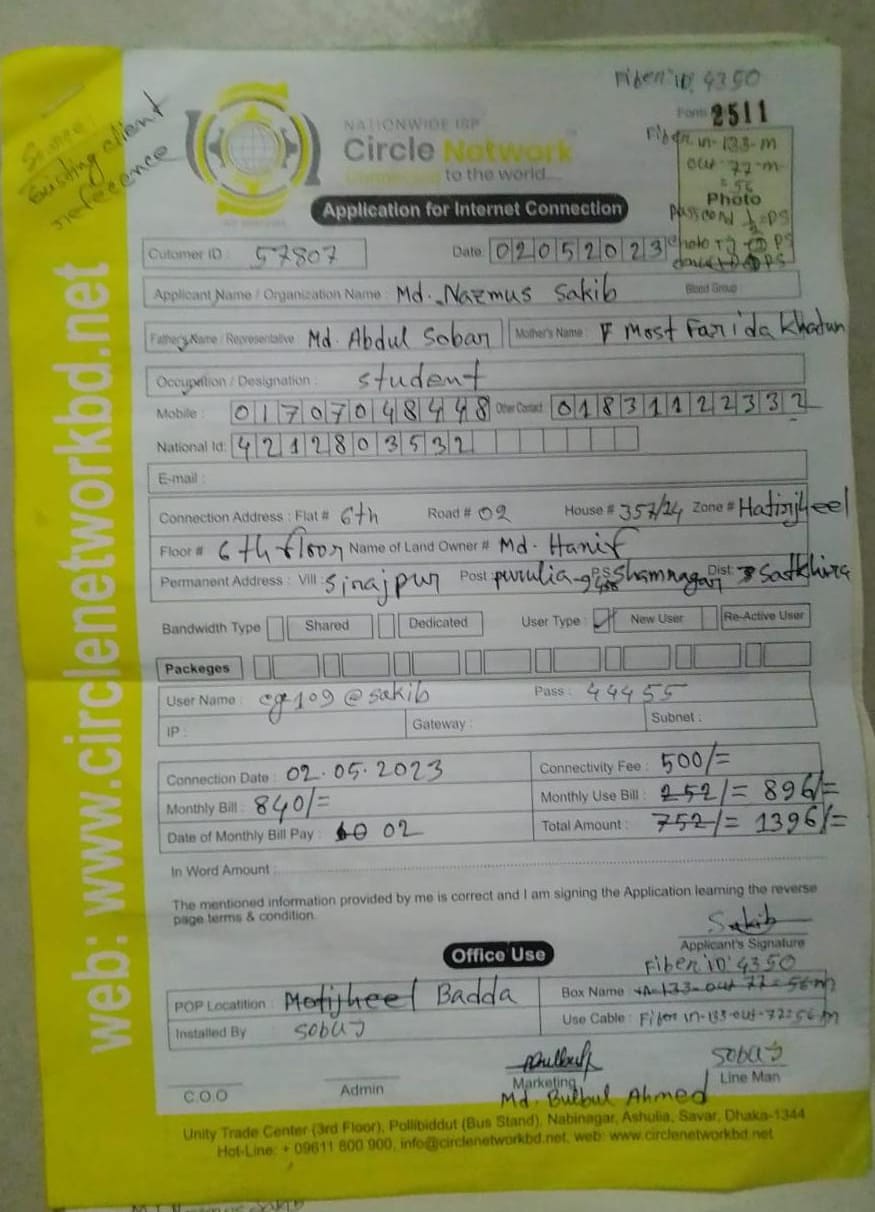 Fiber ID: 4350
Existing client
reference
NATIONWIDE ISP
Form 2511
Circle Network
to the world....
Fiber in-133-m
out-77-m
= 56
Photo
Application for Internet Connection
Cutomer ID : 57807 Date: 02052023
Applicant Name / Organization Name : Md. Nazmus Sakib Blood Group
Father's Name / Representative Md. Abdul Sobar Mother's Name : Most Farida Khatun
Occupation / Designation : student
Mobile : 01707048448 Other Contact 01831122332
National Id: 4212803532
E-mail :
Connection Address : Flat # 6th Road # 02 House # 357/24 Zone # Hatirjheel
Floor # 6th floor Name of Land Owner # Md. Hanif
Permanent Address : Vill : Sirajpur Post : purulia P.S Shamnagar Dist. Satkhira
Bandwidth Type Shared Dedicated User Type : New User Re-Active User
Packeges
User Name : cg109@sakib Pass : 44455
IP : Gateway : Subnet :
Connection Date : 02.05.2023 Connectivity Fee : 500/=
Monthly Bill : 840/= Monthly Use Bill : 252/= 896/=
Date of Monthly Bill Pay : 02 Total Amount : 752/= 1396/=
In Word Amount :
The mentioned information provided by me is correct and I am signing the Application learning the reverse
page terms & condition.
Sakib
Applicant's Signature
Office Use
Fiber ID: 4350
POP Locatition : Motijheel Badda Box Name
Installed By Sobuj Use Cable : Fiber in-133-out-77=56m
Sobuj
C.O.O Admin Marketing Line Man
Md. Bulbul Ahmed
Unity Trade Center (3rd Floor), Pollibiddut (Bus Stand), Nabinagar, Ashulia, Savar, Dhaka-1344
Hot-Line: + 09611 800 900, info@circlenetworkbd.net, web: www.circlenetworkbd.net
web: www.circlenetworkbd.net